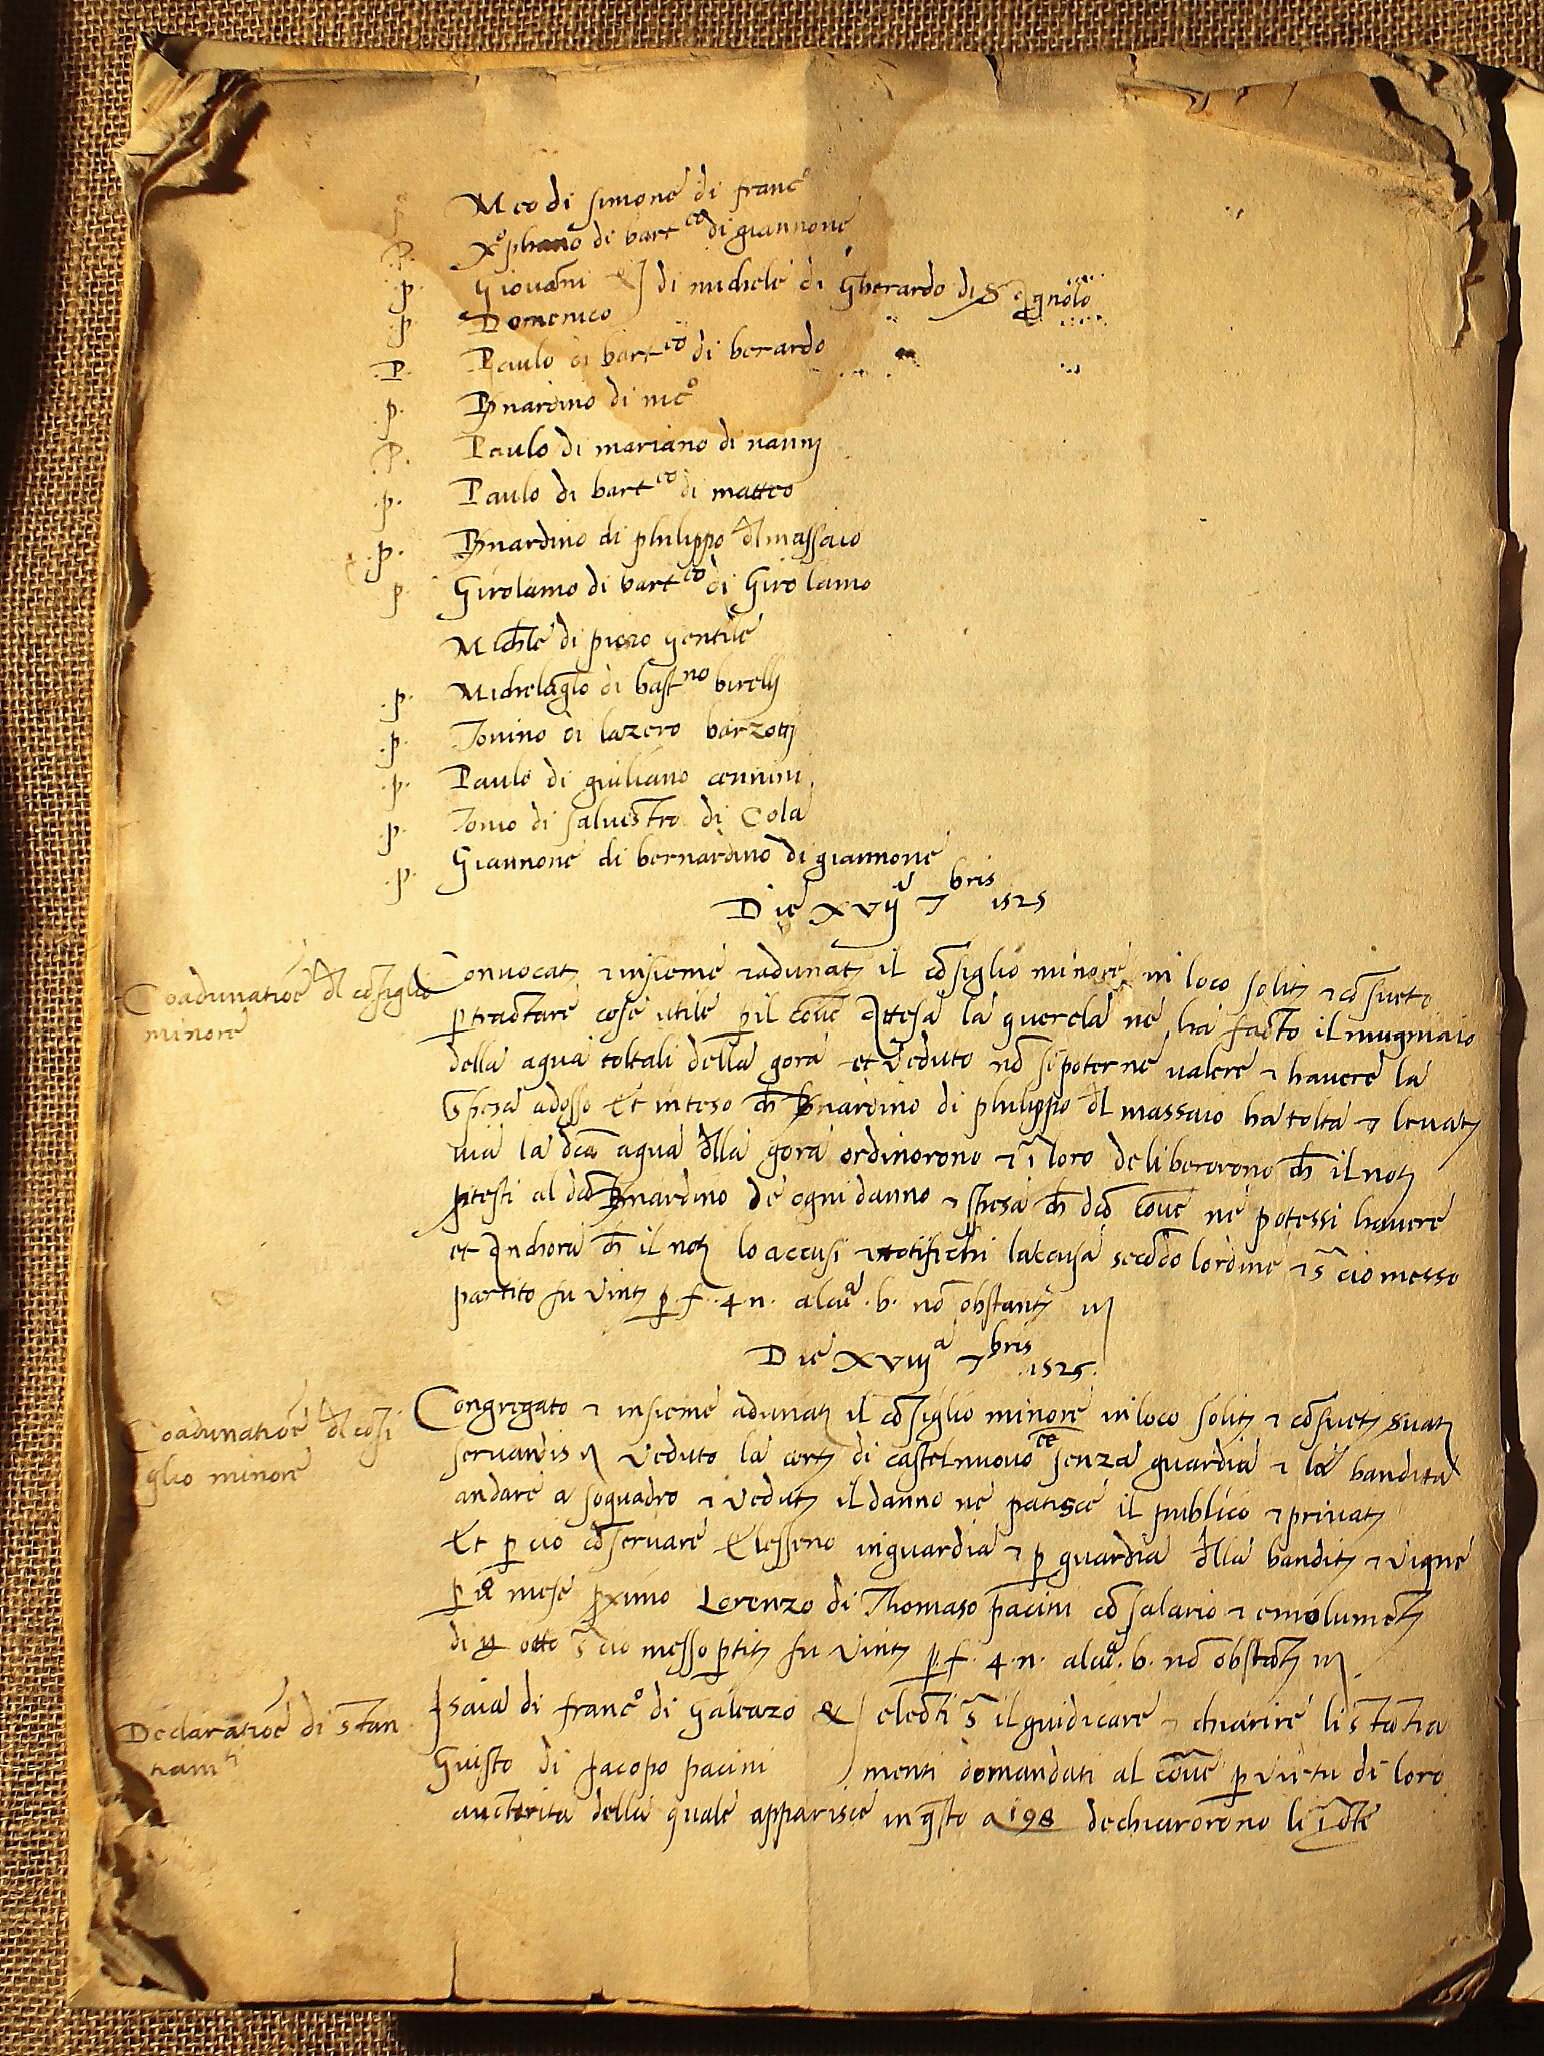 p Meo di simone di franc°
.P. X°phano di bart^co di giannone
.p. Giovani & di michele di Gherardo di S Agnolo
.p. Domenico
.P. Paulo di bart^co di berardo
.p. Bnardino di nic°
.P. Paulo di mariano di nannj
.p. Paulo di bart^co di matteo
.p. Bnardino di philippo dl massaio
p Girolamo di bart^co di Girolamo
Michle di piero gentile
.p. Michelaglo di bast^no birellj
.p. Tonino di lazero barzottj
.p. Paulo di giuliano cennini
.p. Tonio di salvestro di Cola
.p. Giannone di bernardino di giannone
Die xvij 7^bris 1525
Coadunatioe dl cosiglio
minore
Convocatj & insieme & adunatj il cosiglio minore in loco solitj & cosueto
p tractare cose utile p il coue Attesa la querela ne ha facto il mugniaio
della aqua toltali della gora et veduto no si poterne valere & havere la
spesa adosso Et inteso ch Bnardino di philippo dl massaio ha tolta & levatj
via la dca aqua dlla gora ordinorono & i loro deliberorono ch il notj
ptesti al dco Bnardino de ogni danno & spesa ch dco coue ne potessi havere
et Anchora ch il notj lo accusi & notifichi laccusa secodo lordine & s cio messo
partito fu vintj p f. 4. n. alcua. b. no obstantj iij
Die xviij^a 7^bris 1525.
Coadunatioe dl cosi
glio minore
Congregato & insieme adunatj il cosiglio minore in loco solitj & cosuetj svatj
servandis veduto la cortj di castelnuovo ce senza guardia & la bandita
andare a soquadro & vedutj il danno ne patisce il publico & privatj
Et p cio coservare Elesseno in guardia & p guardia dlla banditj & vigne
p il mese pximo Lorenzo di Thomaso pacini co salario & emolumetj
di otto s cio messo ptitj fu vintj p. f. 4. n. alcua. b. no obstatj iij.
Declaratioe di stan
tiam^ti
Isaia di franc° di Galeazo & electi s il guidicare & chiarire li stantia
Giusto di Jacopo pacini menti domandati al coue p virtu di loro
auctorita della quale apparisce in qsto a 198 dechiarorono li